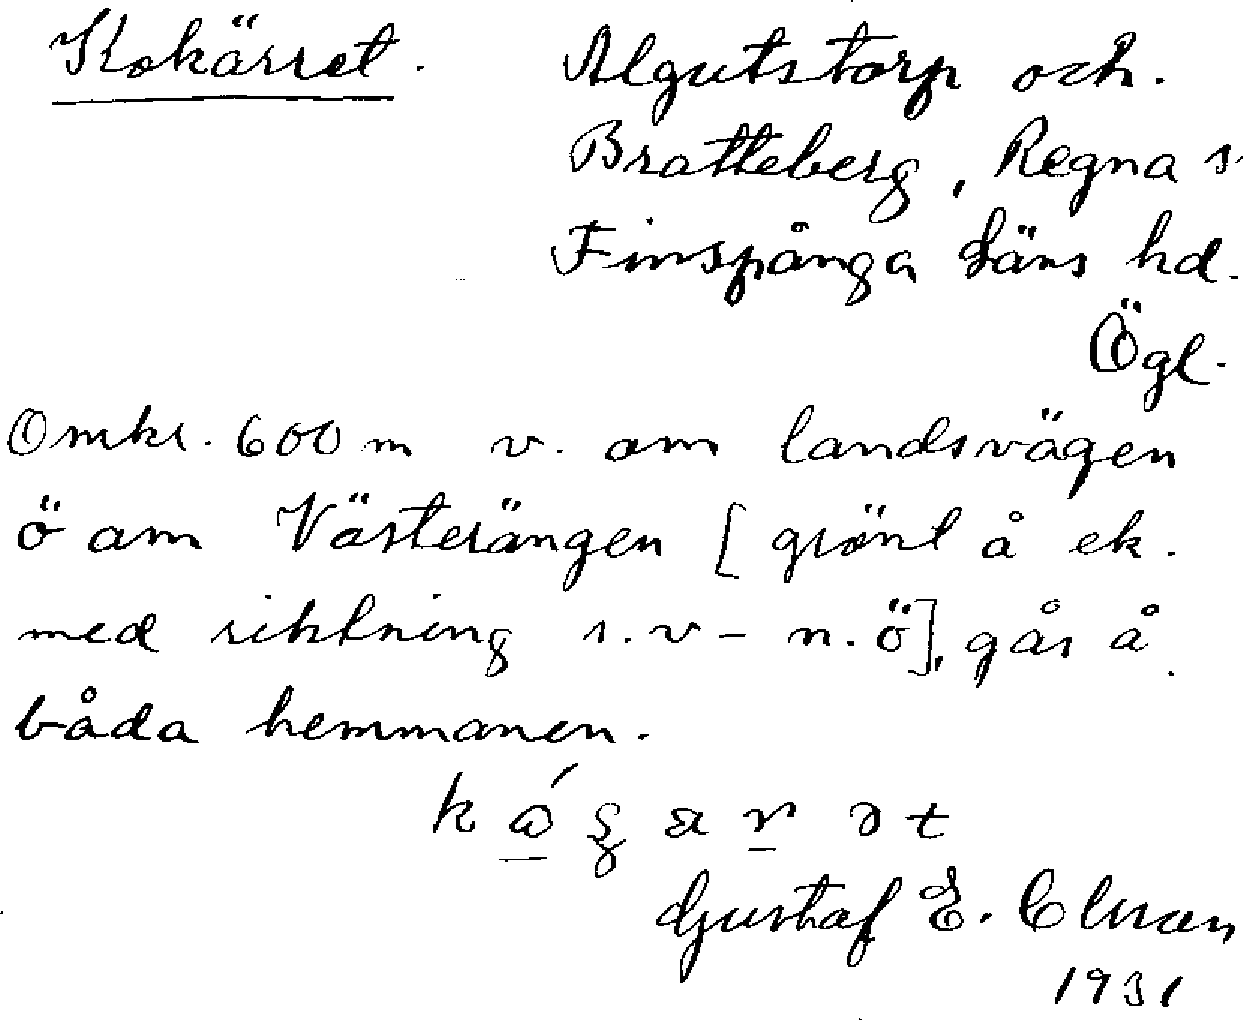 Kokärret. Algutstorp och.
Bratteberg, Regna s.
Finspånga läns hd.
Ögl.
Omkr. 600 m v. om landsvägen
ö om Västerängen [grönt å ek.
med riktning s.v - n.ö], går å
båda hemmanen.
Gustaf E.
1931